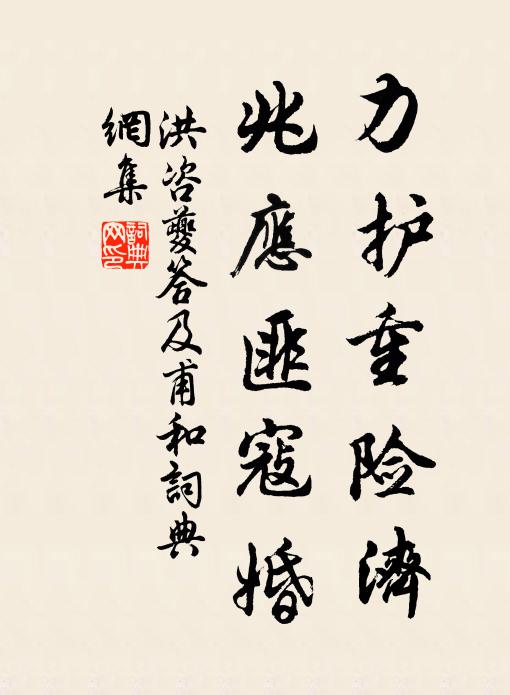 力护重险濟
兆應匪寇婚
洪咨夔答及甫和詞典
網集
詞典网印